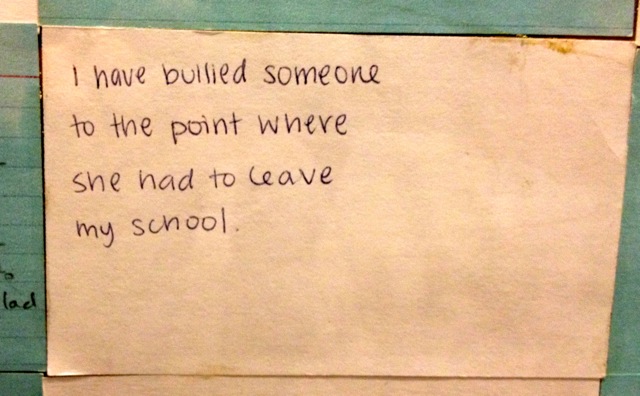 I have bullied someone
to the point where
she had to leave
my school.
lad